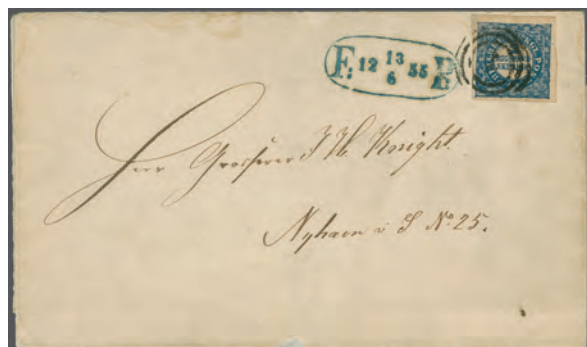 F: 12 13/6 55 P.
Herr Grosserer J H. Knight.
Nyhavn i S No 25.